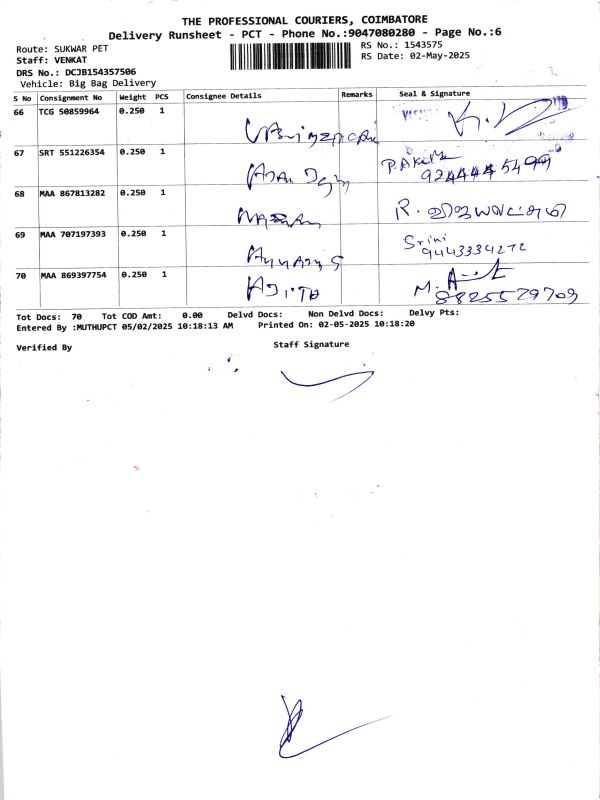 THE PROFESSIONAL COURIERS, COIMBATORE
Delivery Runsheet - PCT - Phone No.:9047080280 - Page No.:6
Route: SUKWAR PET
RS No.: 1543575
Staff: VENKAT
RS Date: 02-May-2025
DRS No.: DCJB154357506
Vehicle: Big Bag Delivery
S No Consignment No Weight PCS Consignee Details Remarks Seal & Signature
66 TCG 50859964 0.250 1
67 SRT 551226354 0.250 1
68 MAA 867813282 0.250 1 R. விஜயலட்சுமி
69 MAA 707197393 0.250 1 Srini
9443334272
70 MAA 869397754 0.250 1 AJITH
8825579709
Tot Docs: 70 Tot COD Amt: 0.00 Delvd Docs: Non Delvd Docs: Delvy Pts:
Entered By :MUTHUPCT 05/02/2025 10:18:13 AM Printed On: 02-05-2025 10:18:20
Verified By Staff Signature